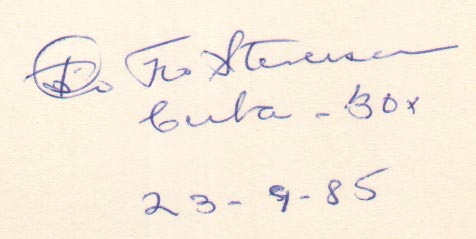 Teo Stevenson
Cuba - Box
23-9-85